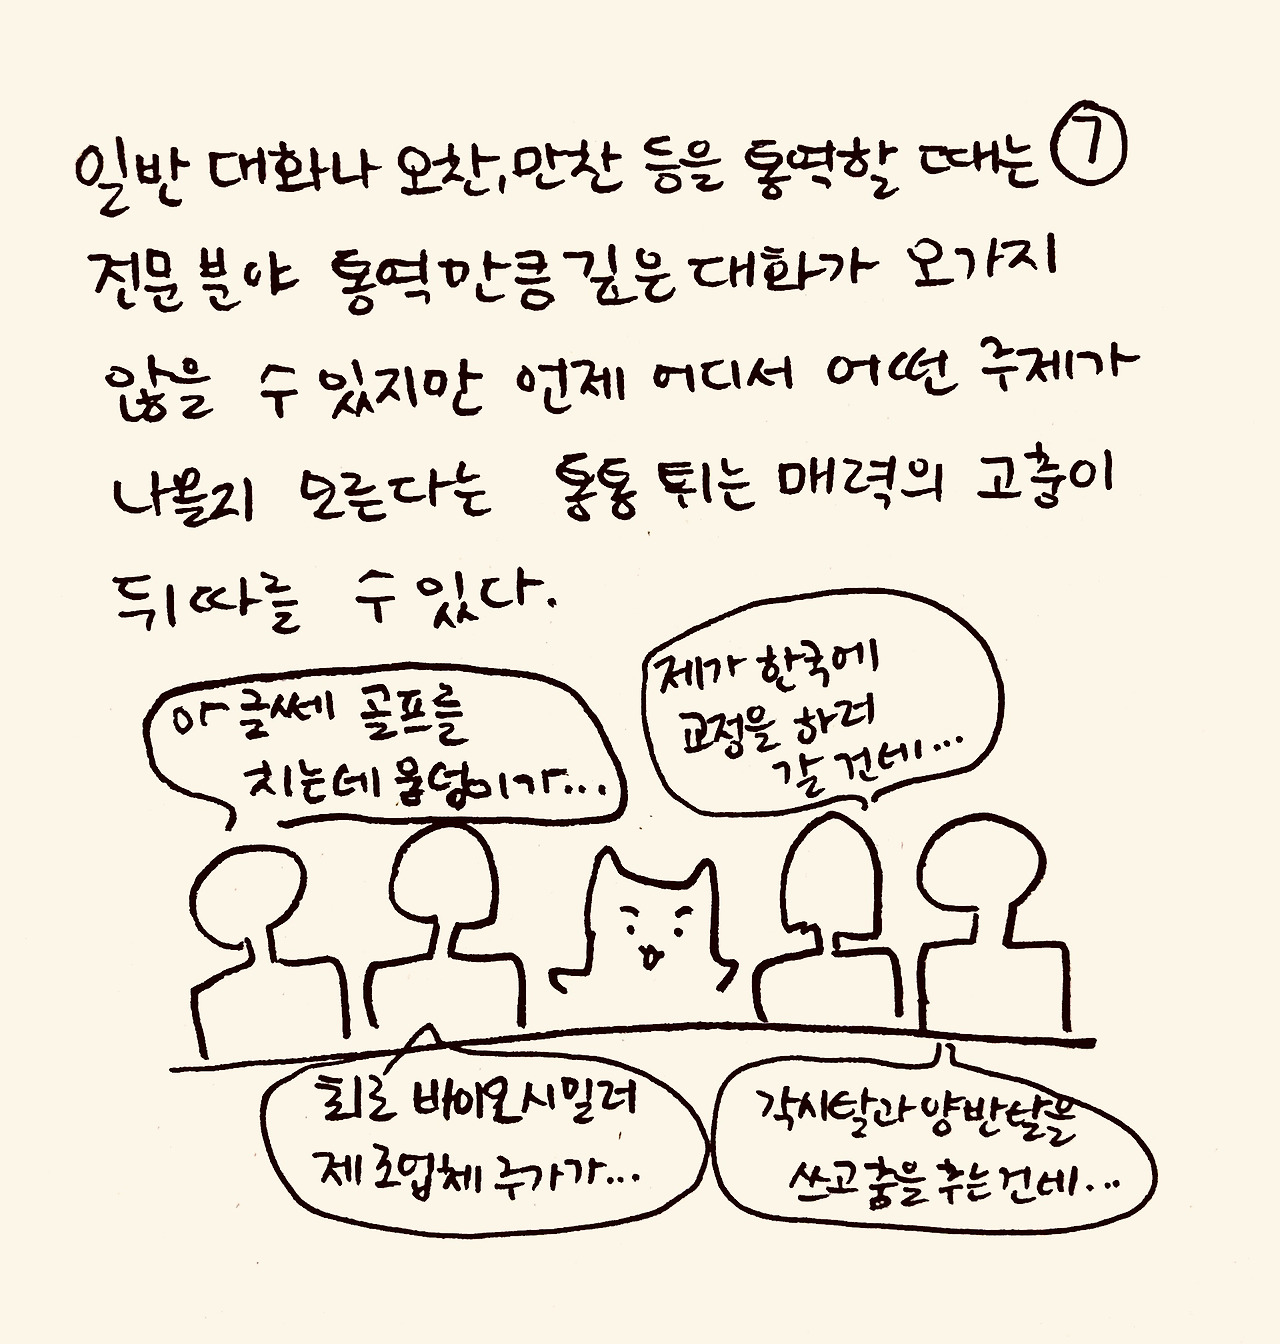 일반 대화나 오찬, 만찬 등을 통역할 때는 ⑦
전문분야 통역만큼 깊은 대화가 오가지
않을 수 있지만 언제 어디서 어떤 주제가
나올지 모른다는 통통 튀는 매력의 고충이
뒤따를 수 있다.
아 글쎄 골프를
치는데 웅덩이가...
제가 한국에
교정을 하러
갈 건데...
최근 바이오시밀러
제조업체 주가가...
각시탈과 양반탈을
쓰고 춤을 추는 건데...